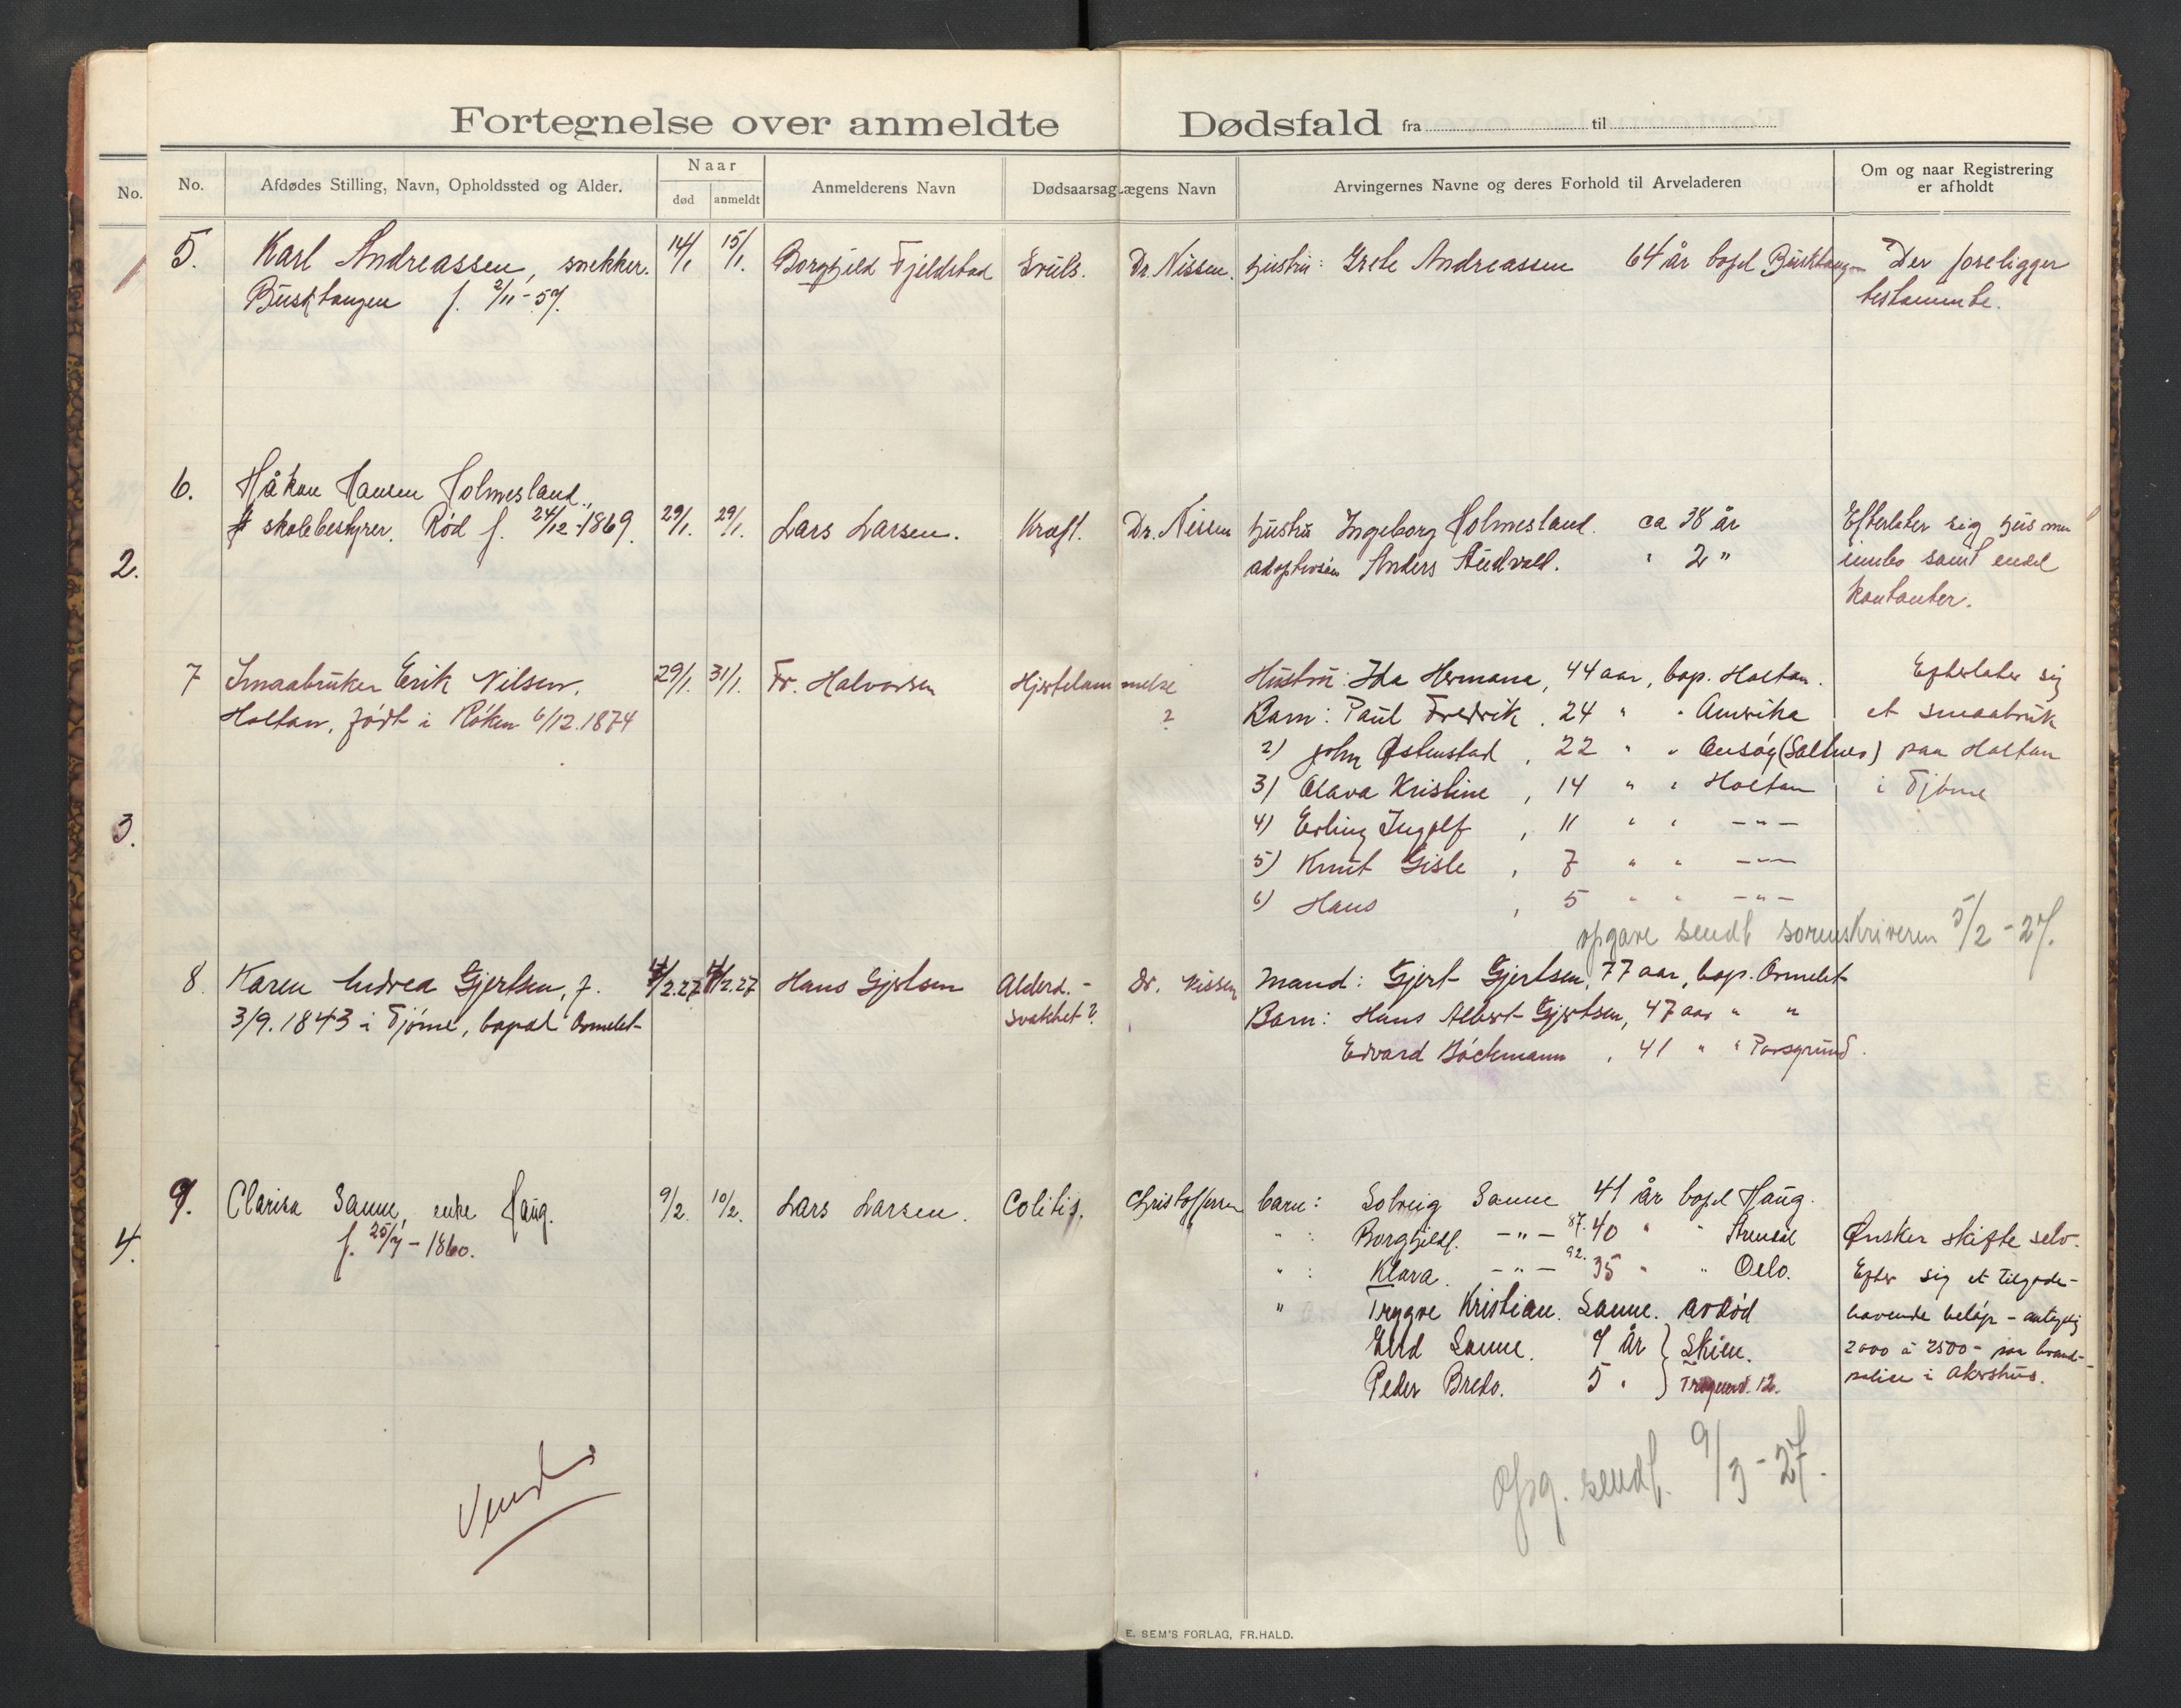 Fortegnelse over anmeldte Dødsfald fra til
No.
No.
Afdødes Stilling, Navn, Opholdssted og Alder.
Naar
død
anmeldt
Anmelderens Navn
Dødsaarsag
Lægens Navn
Arvingernes Navne og deres Forhold til Arveladeren
Om og naar Registrering
er afholdt
5. Karl Andreassen, snekker. 14/1 15/1. Borghild Fjeldstad Dr. Nissen. hustru: Grete Andreassen 64 år bopel Busktangen Der foreligger
Busktangen f. 2/11-57. testamente.
6. Håkon Hansen Holmesland.
skolebestyrer. Rød f. 24/12-1869. 29/1. 29/1. Lars Larsen. Kræft. Dr. Nissen hustru Ingeborg Holmesland. ca 38 år Efterlater sig hus med
adoptivsøn Anders " 2 " innbo samt endel
kontanter.
2.
7 Smaabruker Erik Nilsen. 29/1. 31/1. Fr. Halvorsen Hjertelammelse Hustru: Ida Hermana, 44 aar, bop. Holtan. Efterlater sig
Holtan, født i Röken 6/12.1874 ? Barn: Paul Fredrik, 24 " " Amerika et smaabruk
2) John Østenstad, 22 " " (Saltnes) paa Holtan
3) Olava Kristine, 14 " " Holtan i Tjöme
3.
4) Erling Ingolf, 11 " " -"-
5) Knut Gisle, 7 " " -"-
6) Hans, 5 " " -"-
opgave sendt sorenskriveren 5/2-27.
8. Karen Andrea Gjertsen, f. 4/2.27 4/2.27 Hans Gjertsen Alderd.- Dr. Nissen Mand: Gjert Gjertsen, 77 aar, bop. Ormelet
3/9.1843 i Tjöme, bopæl Ormelet svakhet? Barn: Hans Albert Gjertsen, 47 aar " "
Edvard Böckmann, 41 " " Porsgrund.
9. Clarisa Sanne, enke Haug. 9/2. 10/2. Lars Larsen. Colitis. Christoffersen barn: Solveig Sanne 41 år bopel Haug.
f. 25/7-1860. " : Borghild. -"- 87. 40 " " Arendal Ønsker skifte selv.
4.
" : Klara. -"- 92. 35 " " Oslo. Efter sig et tilgode-
" Trygve Kristian Sanne. avdød havende beløp - antagelig
Sanne. 7 år } Skien. 2000 à 2500 - paa brand-
Peder Bredo. 5 " } 12. police i Akershus.
Opg. sendt. 9/3-27.
Vend
E. SEM'S FORLAG, FR.HALD.